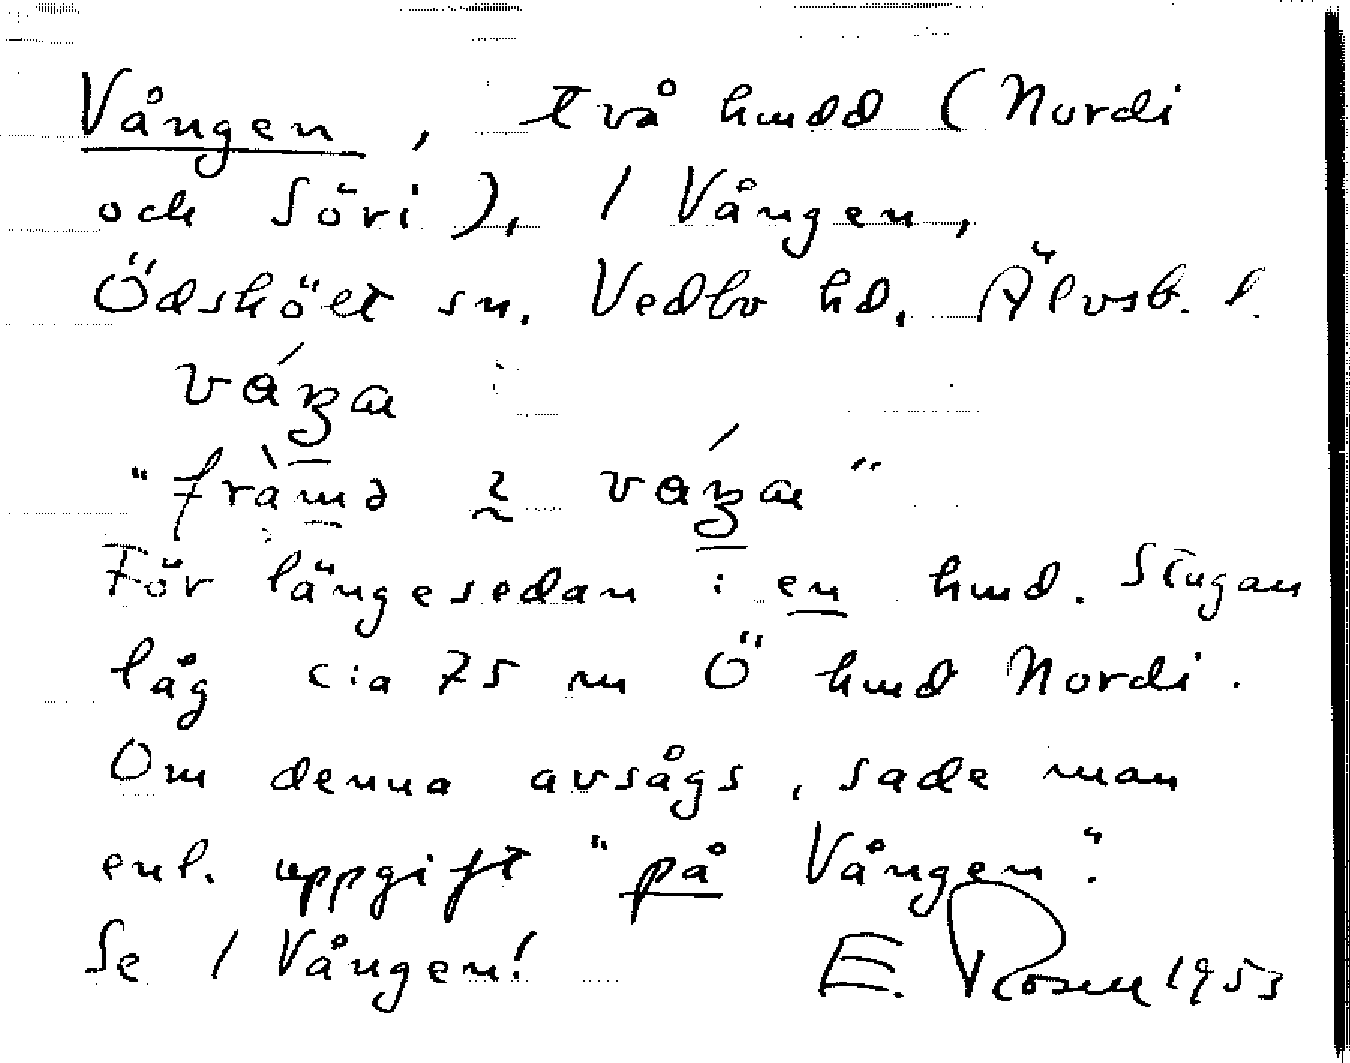 Vången, två hmdd (Nordi
och Söri), 1 Vången,
Ödskölt sn. Vedbo hd. Älvsb. l.
"främə
För längesedan i en hmd. Stugan
låg c:a 75 m Ö hmd Nordi.
Om denna avsågs, sade man
enl. uppgift "på Vången".
Se 1 Vången! E. Rosell 1953